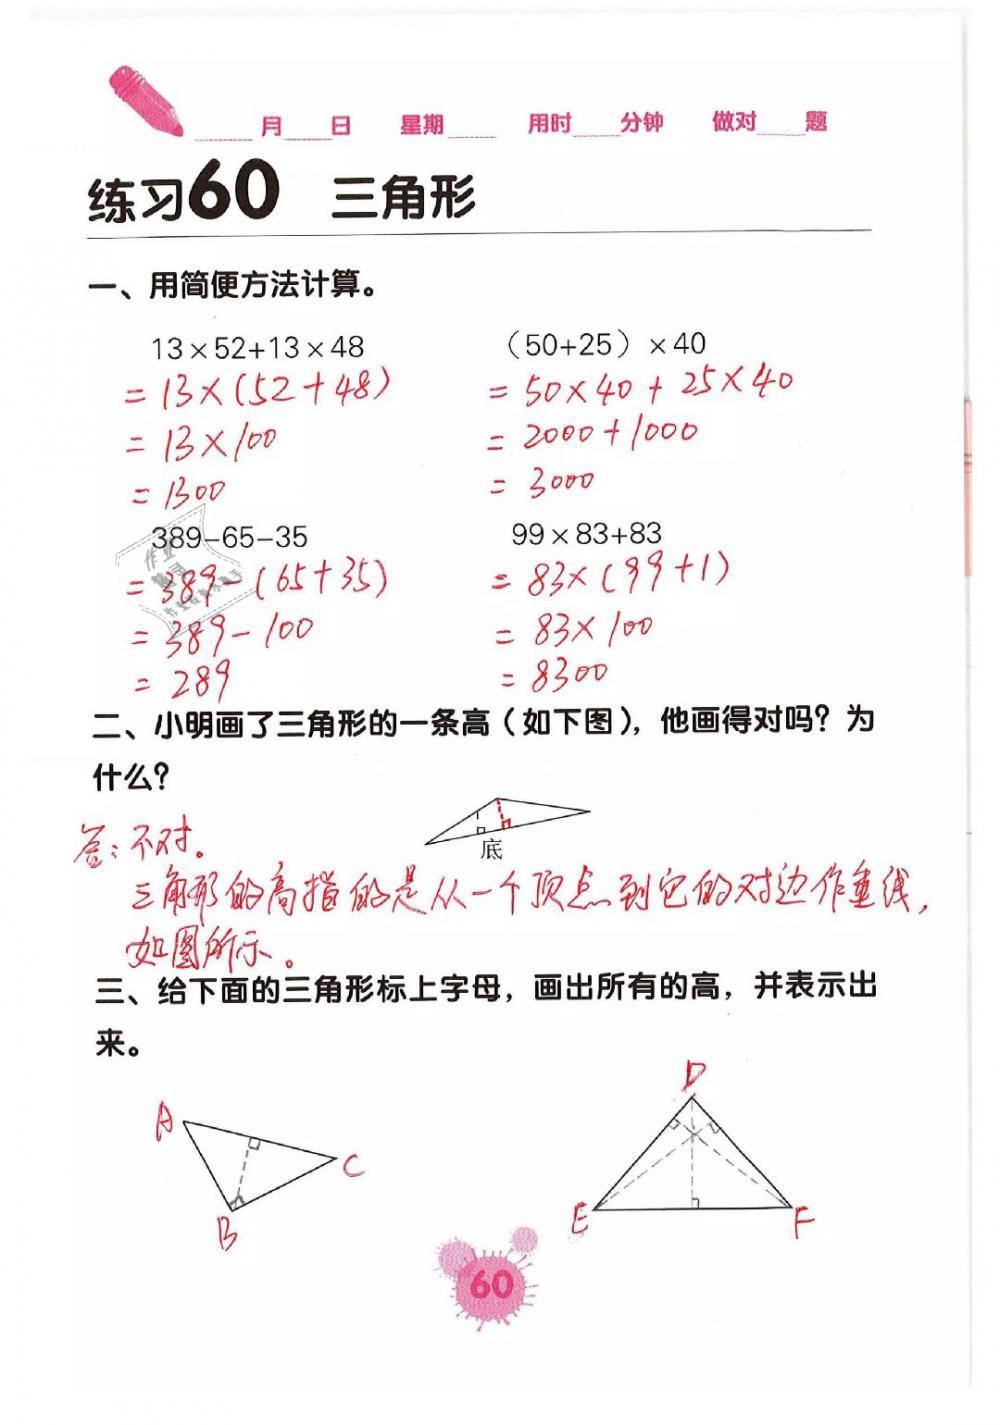 月 日 星期 用时 分钟 做对 题
练习60 三角形
一、用简便方法计算。
13×52+13×48 （50+25）×40
=13×(52+48) =50×40+25×40
=13×100 =2000+1000
=1300 =3000
389-65-35 99×83+83
=389-(65+35) =83×(99+1)
=389-100 =83×100
=289 =8300
二、小明画了三角形的一条高（如下图），他画得对吗？为
什么？
答：不对。
底
三角形的高指的是从一个顶点到它的对边作垂线，
如图所示。
三、给下面的三角形标上字母，画出所有的高，并表示出
来。
D
A
C
B
E F
60